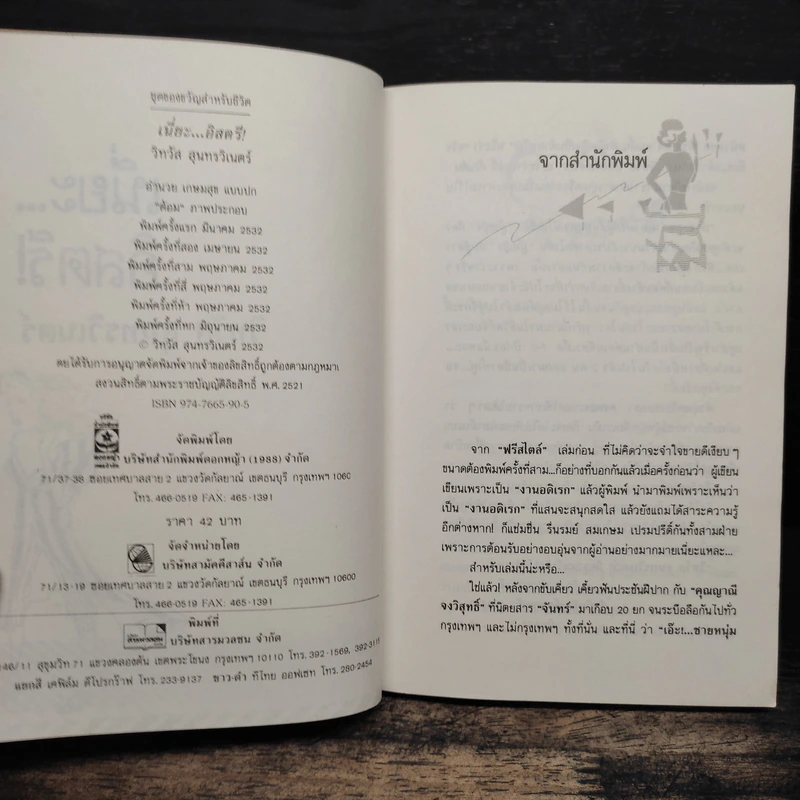 ชุดของขวัญสำหรับชีวิต
เนี่ยะ...อิสตรี!
วิทวัส สุนทรวิเนตร์
อำนวย เกษมสุข แบบปก
"ต้อม" ภาพประกอบ
พิมพ์ครั้งแรก มีนาคม 2532
พิมพ์ครั้งที่สอง เมษายน 2532
พิมพ์ครั้งที่สาม พฤษภาคม 2532
พิมพ์ครั้งที่สี่ พฤษภาคม 2532
พิมพ์ครั้งที่ห้า พฤษภาคม 2532
พิมพ์ครั้งที่หก มิถุนายน 2532
วิทวัส สุนทรวิเนตร์ 2532
ดยได้รับการอนุญาตจัดพิมพ์จากเจ้าของลิขสิทธิ์ถูกต้องตามกฎหมาย
สงวนสิทธิ์ตามพระราชบัญญัติลิขสิทธิ์ พ.ศ. 2521
ISBN 974-7665-90-5
จัดพิมพ์โดย
บริษัทสำนักพิมพ์ดอกหญ้า (1988) จำกัด
71/37-38 ซอยเทศบาลสาย 2 แขวงวัดกัลยาณ์ เขตธนบุรี กรุงเทพฯ 1060
โทร. 466-0519 FAX: 465-1391
ราคา 42 บาท
จัดจำหน่ายโดย
บริษัทสามัคคีสาส์น จำกัด
71/13-19 ซอยเทศบาลสาย 2 แขวงวัดกัลยาณ์ เขตธนบุรี กรุงเทพฯ 10600
โทร. 466-0519 FAX: 465-1391
พิมพ์ที่
บริษัทสารมวลชน จำกัด
46/11 สุขุมวิท 71 แขวงคลองตัน เขตพระโขนง กรุงเทพฯ 10110 โทร. 392-1569, 392-3115
แยกสี เคฟิล์ม ดีโปรกร๊าฟ โทร. 233-9137 ขาว-ดำ ทีไทย ออฟเซท โทร. 280-2454
จากสำนักพิมพ์
จาก "ฟรีสไตล์" เล่มก่อน ที่ไม่คิดว่าจะจำใจขายดีเชียบๆ
ขนาดต้องพิมพ์ครั้งที่สาม...ก็อย่างที่บอกกันแล้วเมื่อครั้งก่อนว่า ผู้เขียน
เขียนเพราะเป็น "งานอดิเรก" แล้วผู้พิมพ์ นำมาพิมพ์เพราะเห็นว่า
เป็น "งานอดิเรก" ที่แสนจะสนุกสดใส แล้วยังแถมได้สาระความรู้
อีกต่างหาก! ก็แช่มชื่น รื่นรมย์ สมเกษม เปรมปรีดิ์กันทั้งสามฝ่าย
เพราะการต้อนรับอย่างอบอุ่นจากผู้อ่านอย่างมากมายเนี่ยะแหละ...
สำหรับเล่มนี้น่ะหรือ...
ใช่แล้ว! หลังจากขับเคี่ยว เคี้ยวฟันประชันฝีปาก กับ "คุณญาณี
จงวิสุทธิ์" ที่นิตยสาร "จันทร์" มาเกือบ 20 ยก จนระบือลือกันไปทั่ว
กรุงเทพฯ และไม่กรุงเทพฯ ทั้งที่นั่น และที่นี่ ว่า "เอ๊ะ!...ชายหนุ่ม